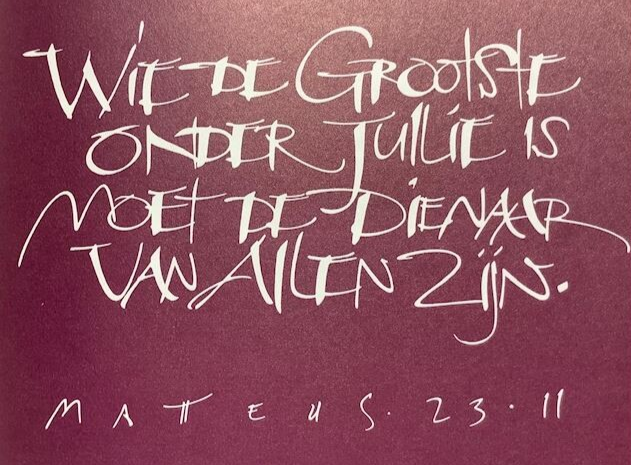 Wie de Grootste
onder Jullie is
moet de dienaar
van Allen Zijn.
MATTEUS. 23. 11